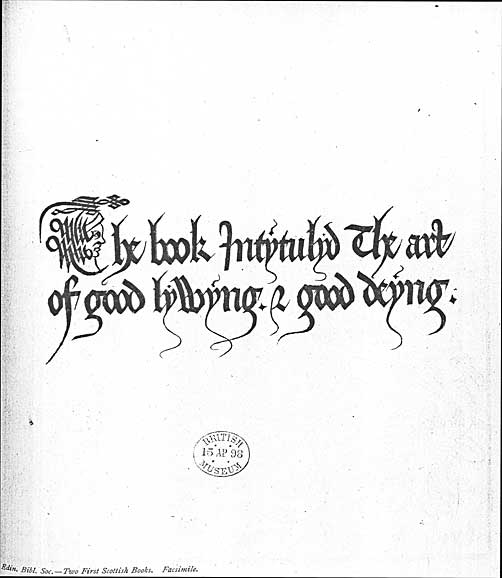 The book Intytulyd The art
of good lyWyng. & good deyng.
BRITISH
15 AP 98
MUSEUM
Edin. Bibl. Soc.—Two First Scottish Books. Facsimile.